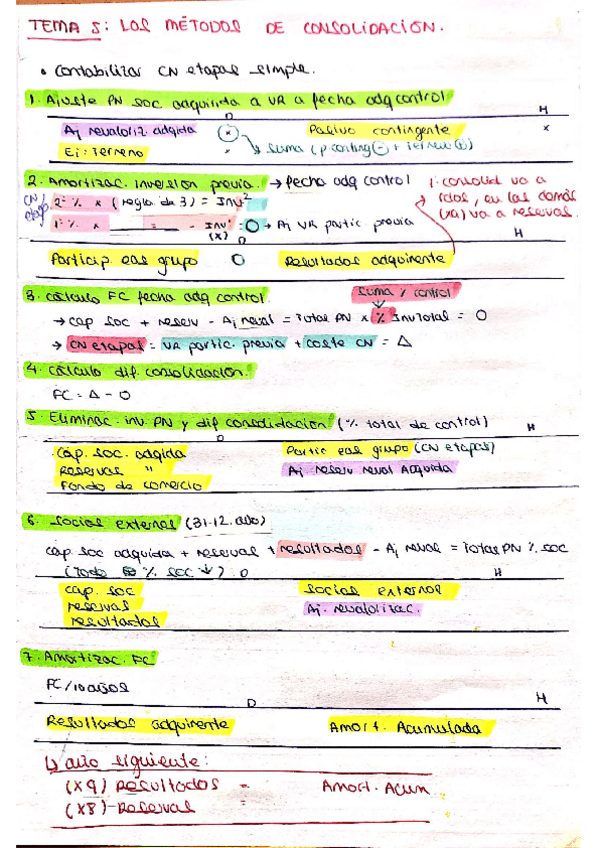 TEMA 5: LOS MÉTODOS DE CONSOLIDACIÓN.
• Contabilizar CN etapas simple.
1. Ajuste PN soc. adquirida a VR a fecha adq control
D H
Aj revaloriz. adqida (x) Pasivo contingente x
Ej: Terreno x ↳ Suma (p conting ⊖ + Terreno ⊕)
2. Amortizac. inversión previa. → fecha adq control
1º consolid va a rdos, en las demás (xa) va a reservas.
CN etapas
2º % x (regla de 3) = Inv²
1º % x = - Inv¹ (x) : O → Aj VR partic previa
D H
Particip. eas grupo O Resultados adquirente
3. Cálculo FC fecha adq control. Suma % control
→ cap soc + reserv - Aj reval = Total PN x % InvTotal = O
→ CN etapas = VR partic. previa + coste CN = Δ
4. Cálculo dif consolidación.
FC = Δ - O
5. Eliminac. inv. PN y dif consolidación (% total de control)
D H
Cap. soc. adqida Partic eas grupo (CN etapas)
Reservas " Aj reserv reval Adquirida
Fondo de comercio
6. Socios externos (31.12.año)
cap soc adquida + reservas + resultados - Aj reval = Total PN % soc
(Todo % soc ↓) D H
Cap. soc Socios externos
reservas Aj. revalorizac.
resultados
7. Amortizac. FC
FC/10 años
D H
Resultados adquirente Amort. Acumulada
↳ año siguiente:
(X9) Resultados - Amort. Acum
(X8) - Reservas -